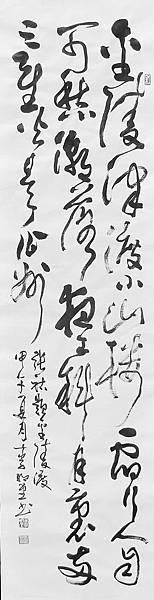 金陵津渡小山樓一宿行人自
可愁潮落夜江斜月裏兩
三星火是瓜州
張祜題金陵渡